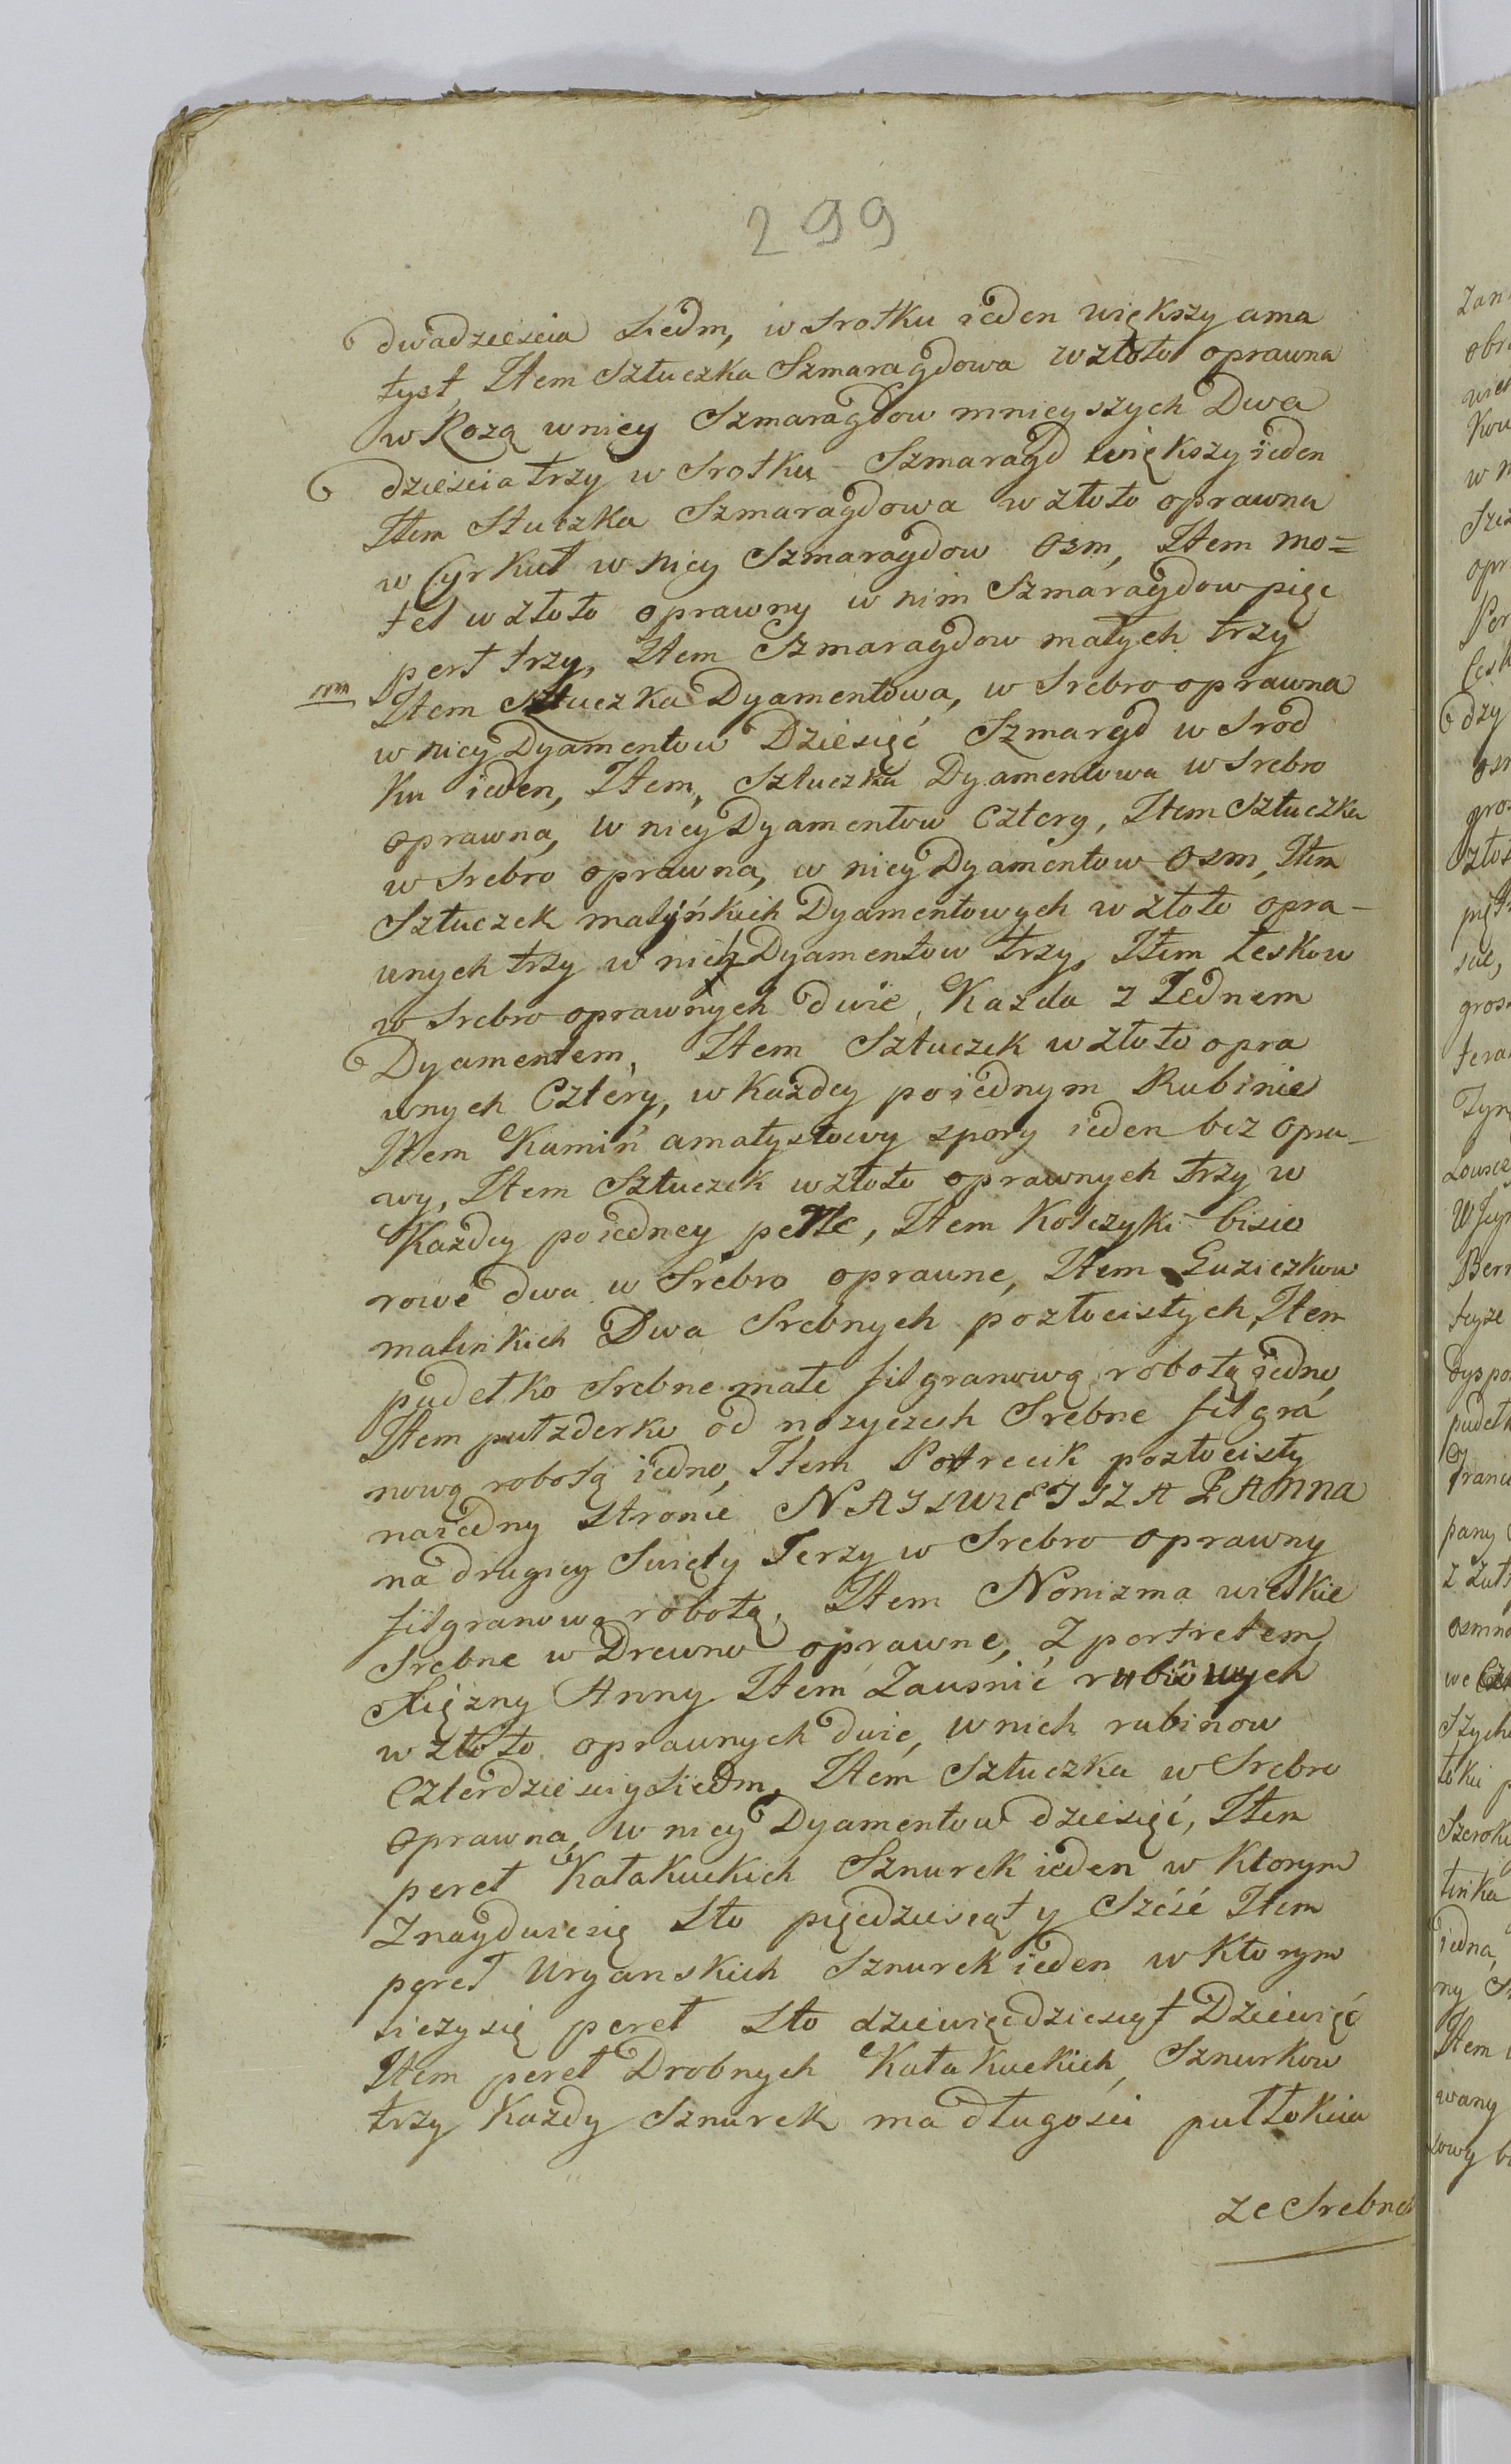 299
dwadziescia siedm, w srotku ieden większy ama
tyst, Item Sztuczka Szmaragdowa w złoto oprawna
w Rozą w niey Szmaragdow mnieyszych Dwa
dziescia trzy w Srotku Szmaragd większy ieden
Item Stuczka Szmaragdowa w złoto oprawna
w Cyrkuł w niey Szmaragdow Osm, Item mo=
tel w złoto oprawny w nim Szmaragdow pięc
pert trzy, Item Szmaragdow małych trzy
Item Sztuczka Dyamentowa, w Srebro oprawna
w niey Dyamentow Dziesięć Szmargd w Srod
ku ieden, Item, Sztuczka Dyamentowa w Srebro
oprawna, w niey Dyamentow Cztery, Item Sztuczka
w Srebro oprawna, w niey Dyamentow Osm, Item
Sztuczek malyńkich Dyamentowych w złoto opra-
wnych trzy w nich Dyamentow trzy, Item Łeskow
w Srebro oprawnych dwie, Kazda z Iednem
Dyamentem, Item Sztuczek w złoto opra
wnych Cztery, w Kazdey poiednym Rubinie
Item Kamiń amatystowy spory ieden bez opra-
wy, Item Sztuczek w złoto oprawnych trzy w
Kazdey poiedney perle, Item Kolczyki bisio
rowe dwa w Srebro oprawne, Item Guziczkow
malinkich Dwa Srebnych pozłocistych, Item
pudełko Srebne małe filgranową robotą iedno,
Item putzderko od nozyczech Srebne filgra
nową robotą iedno, Item Potrecik pozłocisty
naiedny Stronie NAYSWIĘTSZA PANna
na drugiey Swięty Ierzy w Srebro oprawny
filgranową robotą, Item Nonizma wielkie
Srebne w Drewno oprawne, Z portretem
Xięzny Anny Item Zausnic rubinowych
w złoto oprawnych dwie, w nich rubinow
Czterdziesciysiedm, Item Sztuczka w Srebro
Oprawna, w niey Dyamentow dziesięć, Item
pereł Kałakuckich Sznurek ieden w Ktorym
Znayduiesię Sto pięcdziesiąt y Sześć Item
pereł Uryanskich Sznurek ieden w Ktorym
liczysię pereł Sto dziewięcdziesiąt Dziewięć
Item pereł Drobnych Kałakuckich, Sznurkow
trzy Kazdy Sznurek ma długosci pułłokcia
ze Srebne